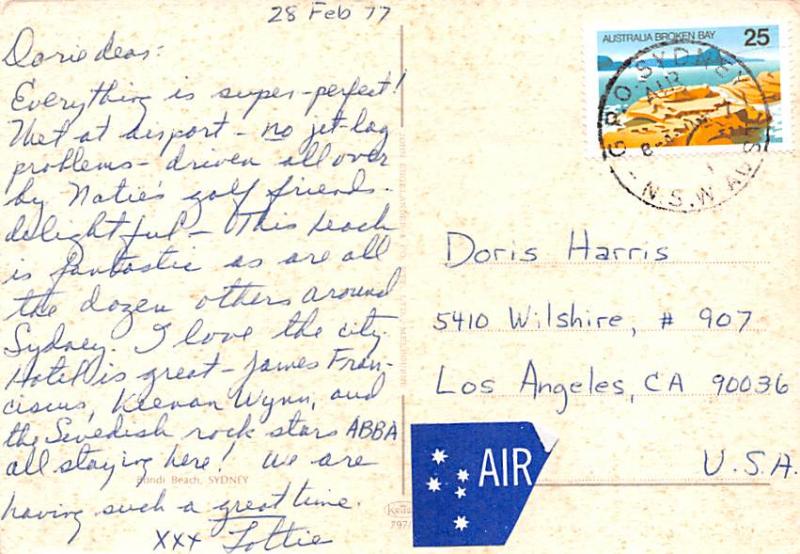 28 Feb 77
Dorie deas:
Everything is super-perfect!
Met at airport - no jet-lag
problems - driven all over
by Natie's golf friends -
delightful - This beach
is fantastic as are all
the dozen others around
Sydney. I love the city.
Hotel is great - James Fran-
ciscus, Keenan Wynn, and
the Swedish rock stars ABBA
all staying here! We are
having such a great time.
xxx Lottie
Bondi Beach, SYDNEY
AUSTRALIA BROKEN BAY 25
G.P.O. SYDNEY
AIR
N.S.W. AUST
Doris Harris
5410 Wilshire, # 907
Los Angeles, CA 90036
U.S.A.
AIR